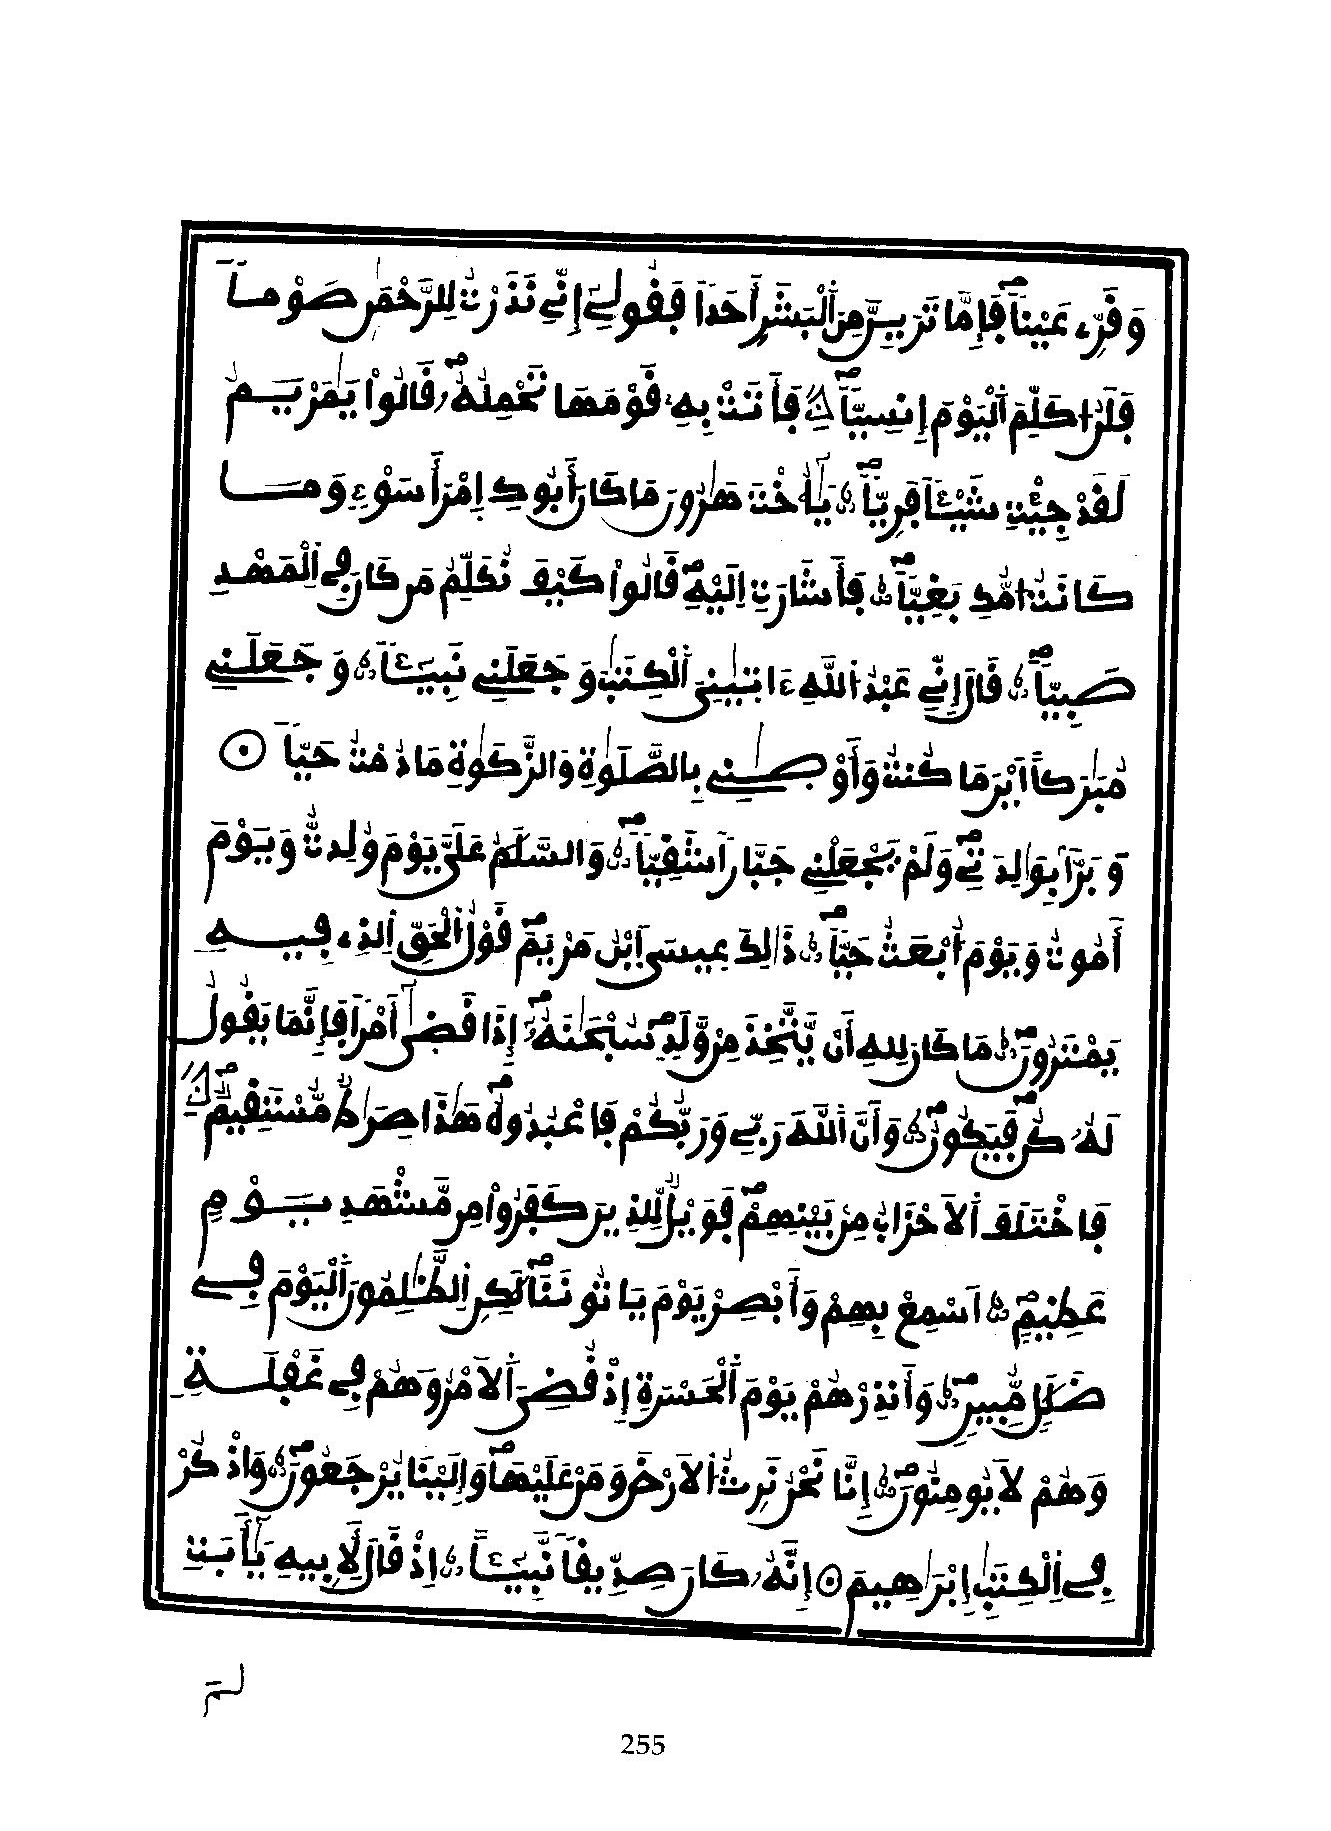 وَقَرِّے عَيْناً فَإِمَّا تَرَيِنَّ مِنَ اَلْبَشَرِ أَحَداً فَقُولِےٓ إِنِّے نَذَرْتُ لِلرَّحْمَٰنِ صَوْماً
فَلَنُ ا۟كَلِّمَ اَلْيَوْمَ إِنسِيّاً فَأَتَتْ بِهِۦ قَوْمَهَا تَحْمِلُهُۥ قَالُواْ يَٰمَرْيَمُ
لَقَدْ جِئْتِ شَيْـٔاً فَرِيّاً يَٰٓأُخْتَ هَٰرُونَ مَا كَانَ أَبُوكِ اِمْرَأَ سَوْءٖ وَمَا
كَانَتُ ا۟مُّكِ بَغِيّاً فَأَشَارَتِ اِلَيْهِ قَالُواْ كَيْفَ نُكَلِّمُ مَن كَانَ فِے اِلْمَهْدِ
صَبِيّاً قَالَ إِنِّے عَبْدُ اُللَّهِ ءَاتَيٰنِيَ اَلْكِتَٰبَ وَجَعَلَنِے نَبِيٓـٔاً وَجَعَلَنِے
مُبَٰرَكاً اَيْنَ مَا كُنتُ وَأَوْصَٰنِے بِالصَّلَوٰةِ وَالزَّكَوٰةِ مَا دُمْتُ حَيّاً
وَبَرَّاَۢ بِوَٰلِدَتِے وَلَمْ يَجْعَلْنِے جَبَّاراً شَقِيّاً وَالسَّلَٰمُ عَلَيَّ يَوْمَ وُلِدتُّ وَيَوْمَ
أَمُوتُ وَيَوْمَ أُبْعَثُ حَيّاً ذَٰلِكَ عِيسَى اَبْنُ مَرْيَمَ قَوْلُ اُلْحَقِّ اِلذِے فِيهِ
يَمْتَرُونَ مَا كَانَ لِلهِ أَنْ يَّتَّخِذَ مِنْ وَّلَدٖ سُبْحَٰنَهُۥٓ إِذَا قَضَىٰٓ أَمْراً فَإِنَّمَا يَقُولُ
لَهُۥ كُن فَيَكُونُ وَأَنَّ اَللَّهَ رَبِّے وَرَبُّكُمْ فَاعْبُدُوهُ هَٰذَا صِرَٰطٞ مُّسْتَقِيمٞ
فَاخْتَلَفَ اَلاَحْزَابُ مِنۢ بَيْنِهِمْ فَوَيْلٞ لِّلذِينَ كَفَرُواْ مِن مَّشْهَدِ يَوْمٍ
عَظِيمٍ اَسْمِعْ بِهِمْ وَأَبْصِرْ يَوْمَ يَاتُونَنَا لَٰكِنِ اِلظَّٰلِمُونَ اَلْيَوْمَ فِے
ضَلَٰلٖ مُّبِينٖ وَأَنذِرْهُمْ يَوْمَ اَلْحَسْرَةِ إِذْ قُضِيَ اَلاَمْرُ وَهُمْ فِے غَفْلَةٖ
وَهُمْ لَا يُومِنُونَ إِنَّا نَحْنُ نَرِثُ اُلاَرْضَ وَمَنْ عَلَيْهَا وَإِلَيْنَا يُرْجَعُونَ وَاذْكُرْ
فِے اِلْكِتَٰبِ إِبْرَٰهِيمَ إِنَّهُۥ كَانَ صِدِّيقاً نَّبِيٓـٔاً اِذْ قَالَ لِأَبِيهِ يَٰٓأَبَتِ
لم
255